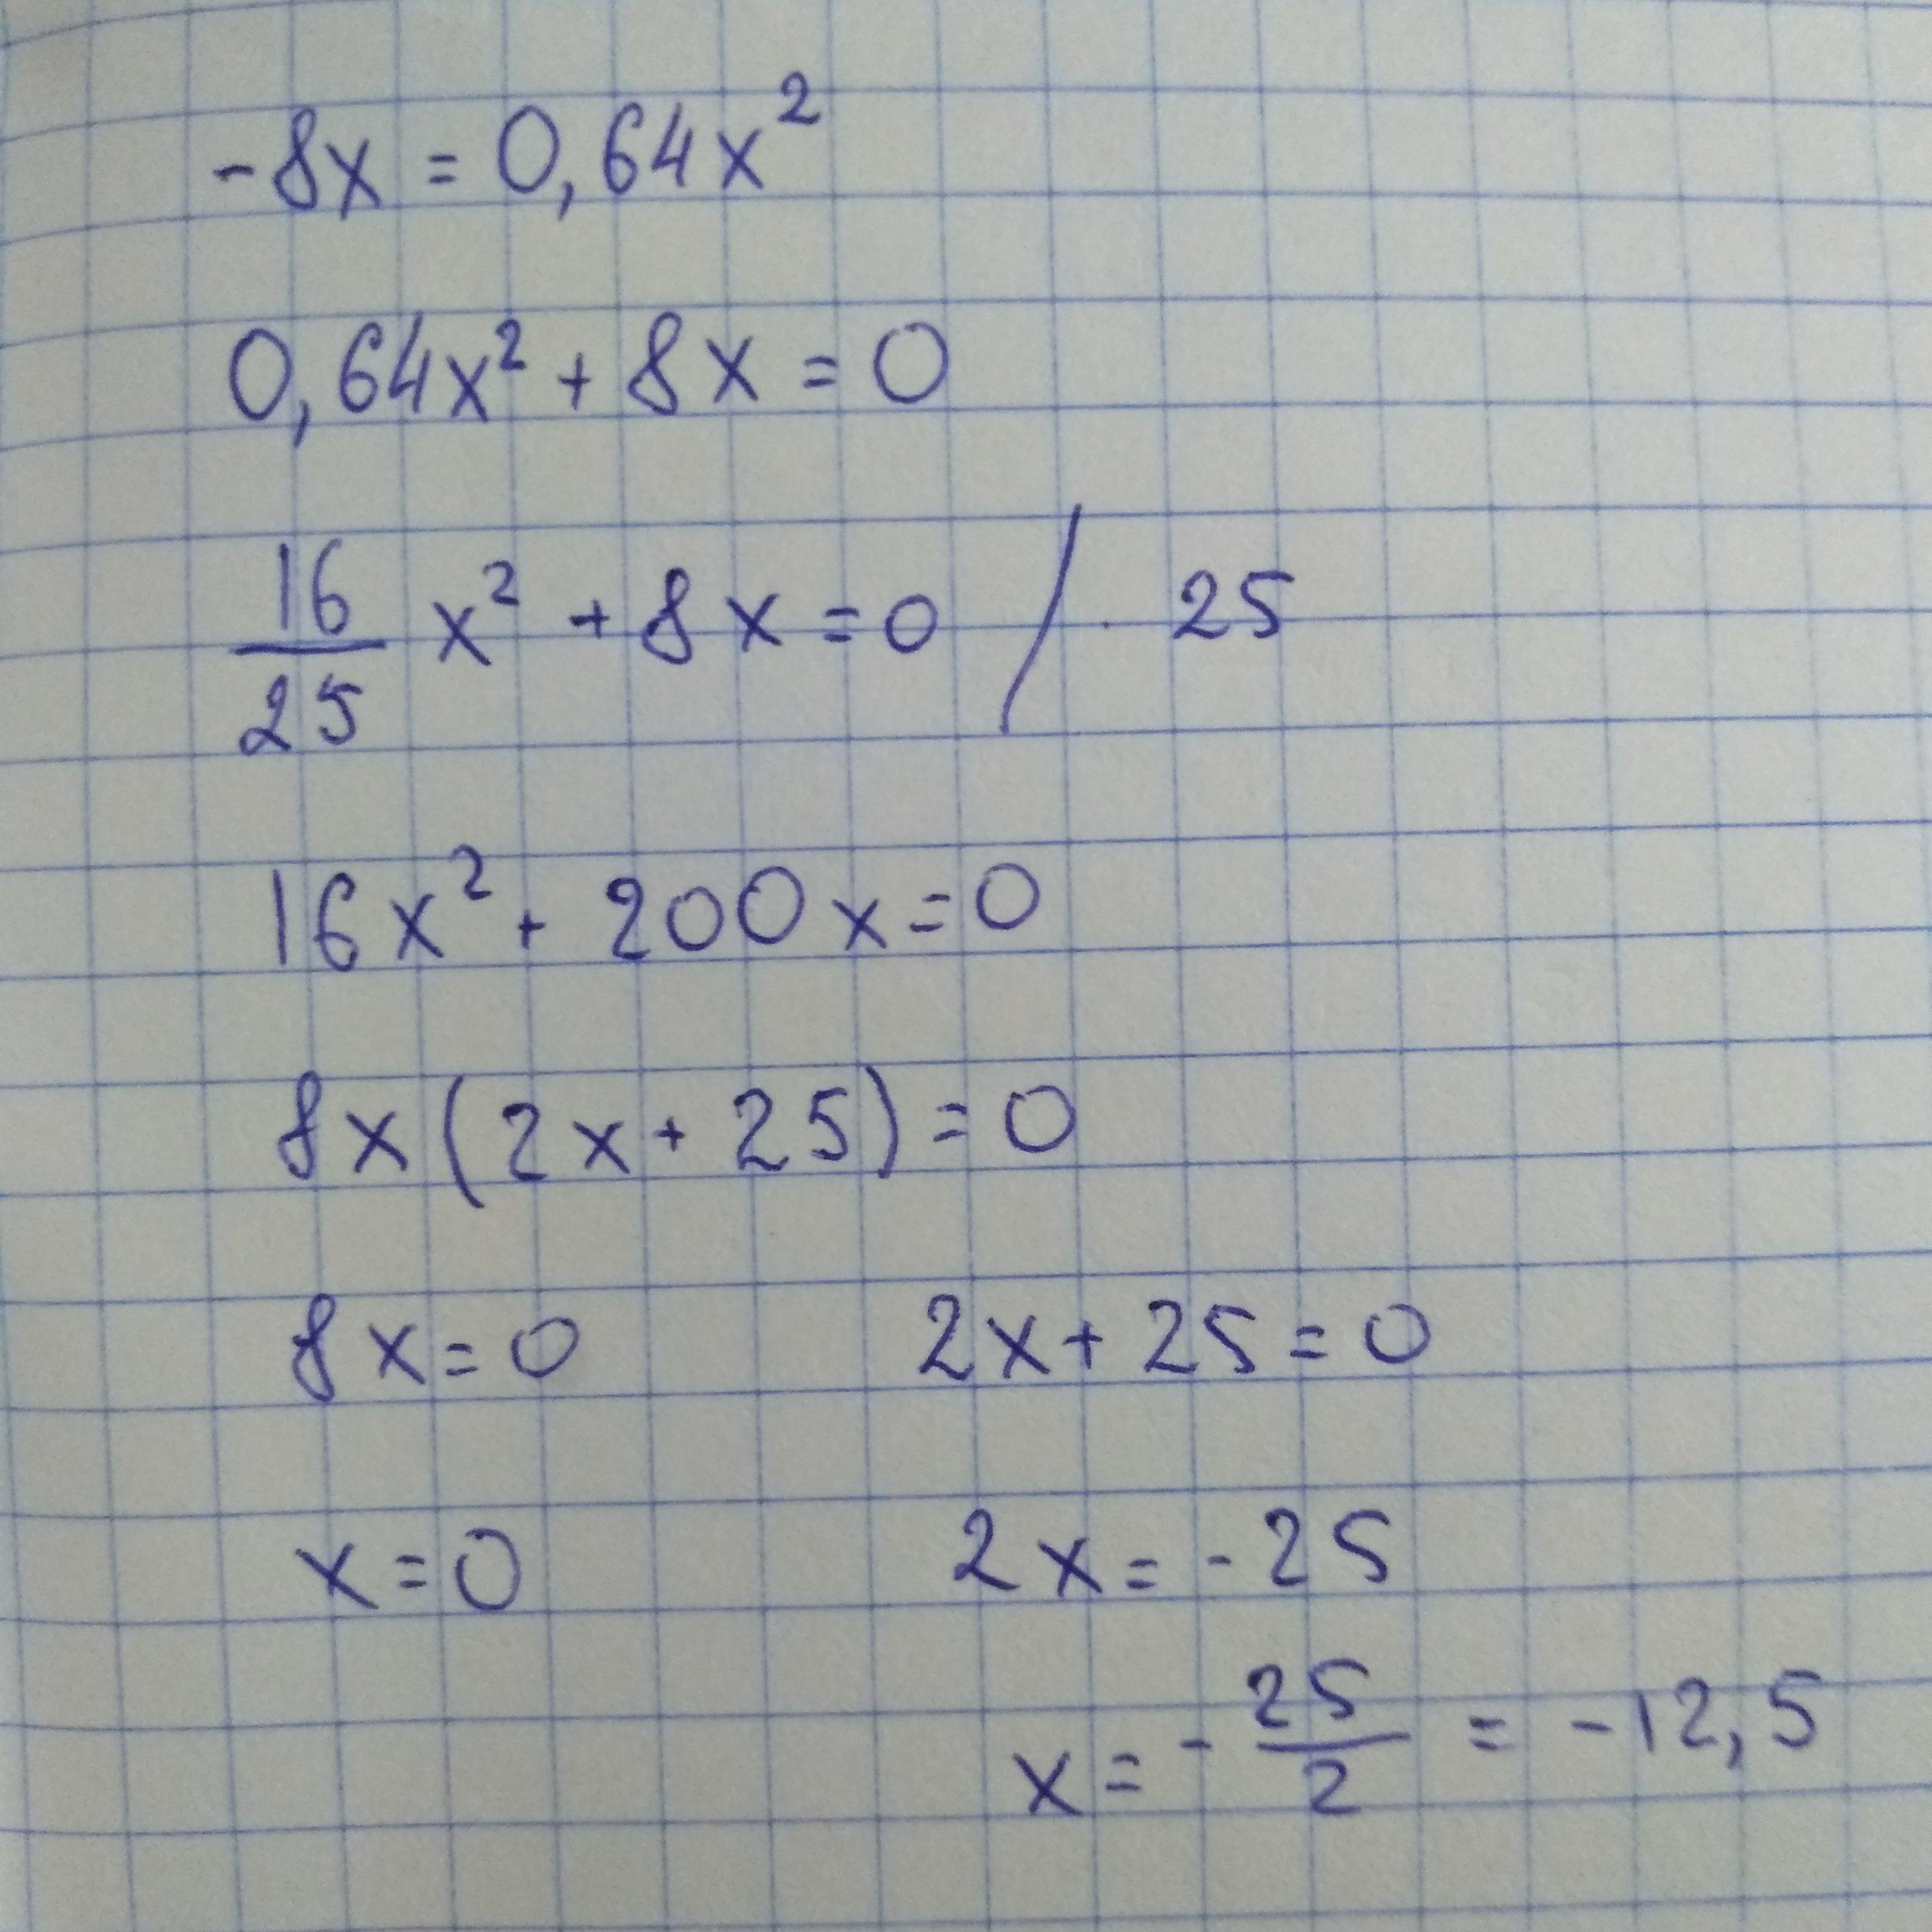 -8x = 0,64x²
0,64x² + 8x = 0
16/25 x² + 8x = 0 / · 25
16x² + 200x = 0
8x(2x + 25) = 0
8x = 0 2x + 25 = 0
x = 0 2x = -25
x = - 25/2 = -12,5